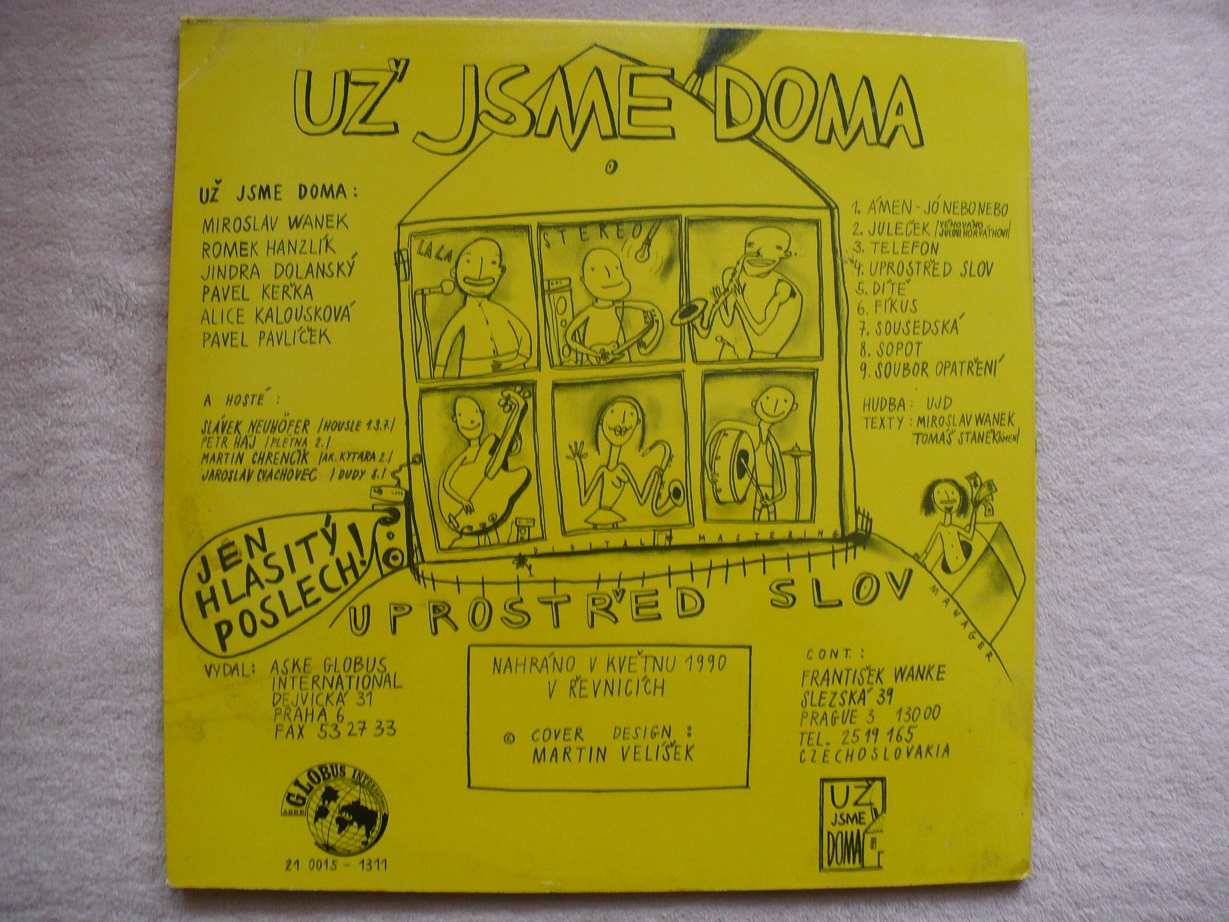 UŽ JSME DOMA
UŽ JSME DOMA:
MIROSLAV WANEK
ROMEK HANZLÍK
JINDRA DOLANSKÝ
PAVEL KEŘKA
ALICE KALOUSKOVÁ
PAVEL PAVLÍČEK
A HOSTÉ:
SLÁVEK NEUHÖFER /HOUSLE 1.3.7./
PETR HÁJ /FLÉTNA 2./
MARTIN CHRENČÍK /AK. KYTARA 2./
JAROSLAV CVACHOVEC /DUDY 8./
LA LA
STEREO
DIGITAL MASTERING
1. ÁMEN - JÓ NEBO NEBO
2. JULEČEK /VĚNOVÁNO
JULIU HORVÁTHOVI/
3. TELEFON
4. UPROSTŘED SLOV
5. DÍTĚ
6. FÍKUS
7. SOUSEDSKÁ
8. SOPOT
9. SOUBOR OPATŘENÍ
HUDBA: UJD
TEXTY: MIROSLAV WANEK
TOMÁŠ STANĚK/ÁMEN/
JEN
HLASITÝ
POSLECH!
UPROSTŘED SLOV
MANAGER
VYDAL: ASKE GLOBUS
INTERNATIONAL
DEJVICKÁ 31
PRAHA 6
FAX 53 27 33
NAHRÁNO V KVĚTNU 1990
V ŘEVNICÍCH
© COVER DESIGN:
MARTIN VELÍŠEK
CONT.:
FRANTIŠEK WANKE
SLEZSKÁ 39
PRAGUE 3 130 00
TEL. 25 19 165
CZECHOSLOVAKIA
ASKE GLOBUS INTERNATIONAL
21 0015 - 1311
UŽ
JSME
DOMA